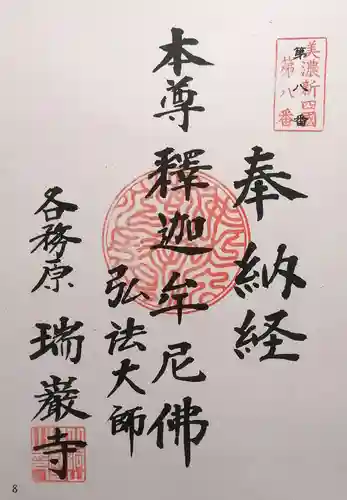 美濃新四國
第八番
第八番
奉納経
本尊釋迦牟尼佛
弘法大師
各務原瑞巖寺
8